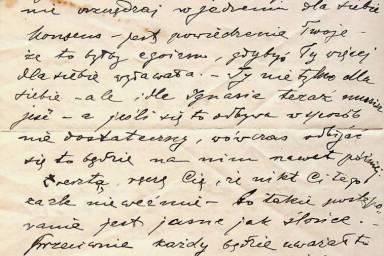 nie oszczędzaj w jedzeniu dla siebie
Nonsens - jest powiedzenie Twoje -
że to byłby egoizm, gdybyś Ty więcej
dla siebie wydawała. - Ty nie tylko dla
siebie - ale i dla Ignasia teraz musisz
jeść - a jeśli się to odbywa w sposób
nie dostateczny, wówczas odbijać
się to będzie na nim nawet później
Zresztą, ręczę Ci, że nikt Ci tego
za złe nie weźmie - bo takie postępo
wanie jest jasne jak słońce. -
Przeciwnie każdy będzie uważał to